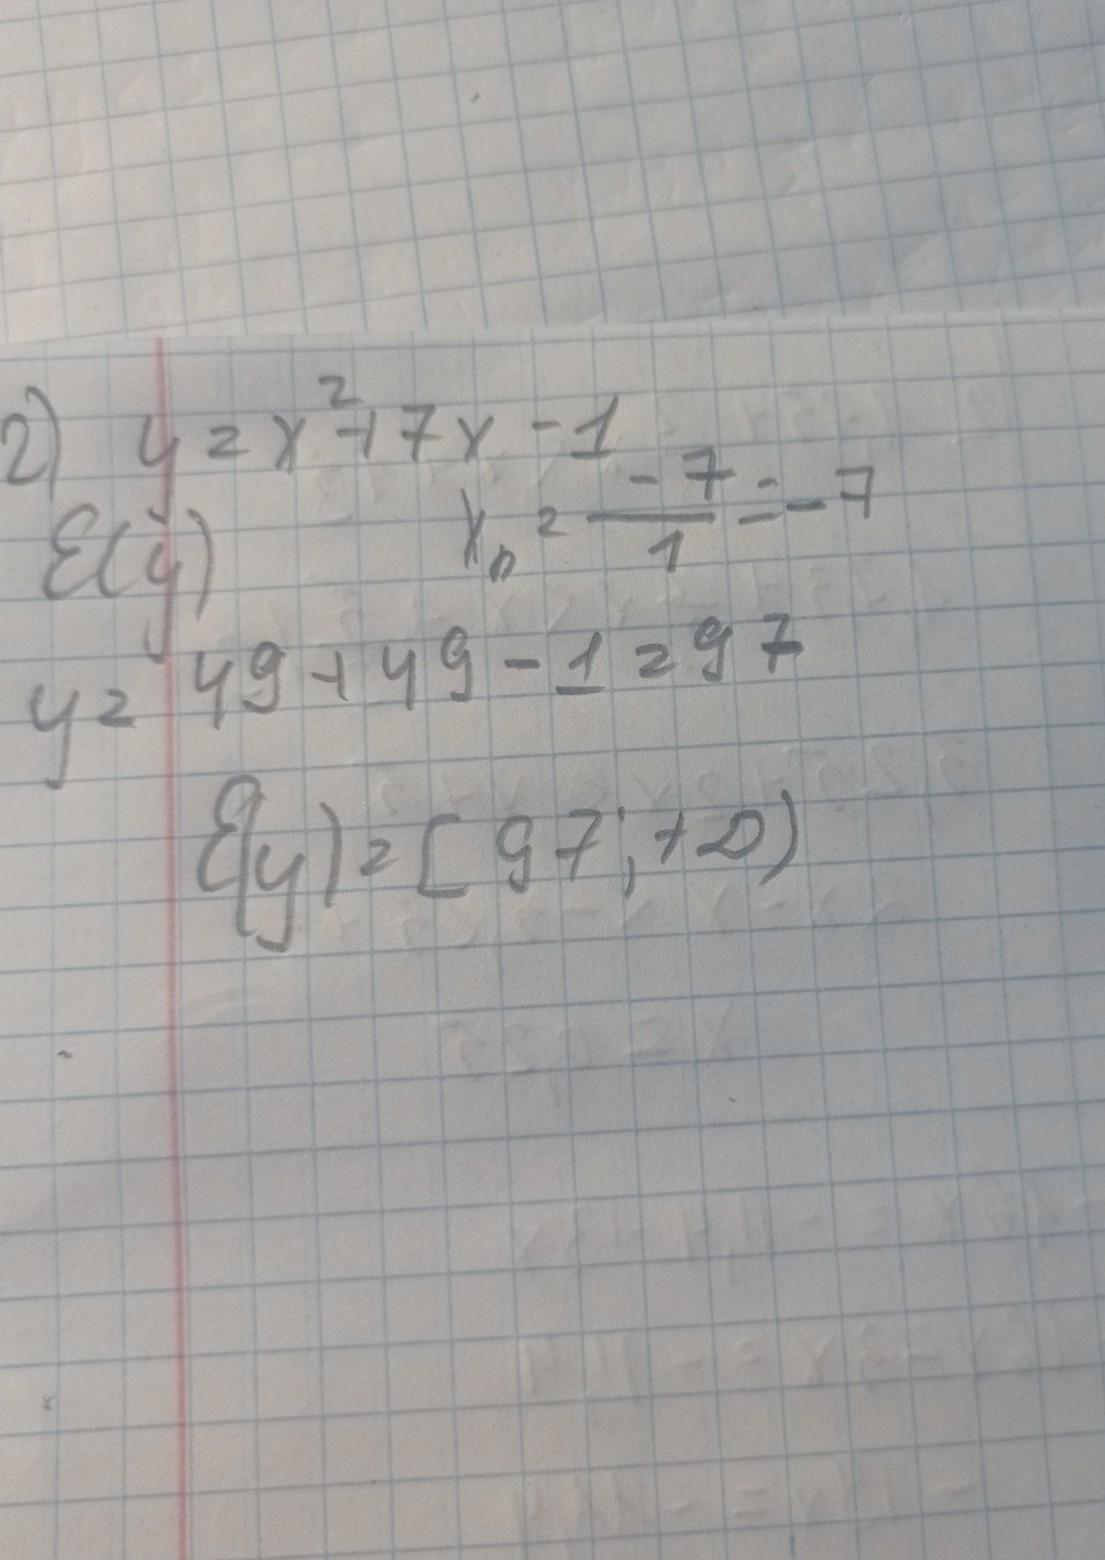 2) y = x² + 7x - 1
E(y) x₀ = -7/1 = -7
y = 49 + 49 - 1 = 97
E(y) = [97; +∞)